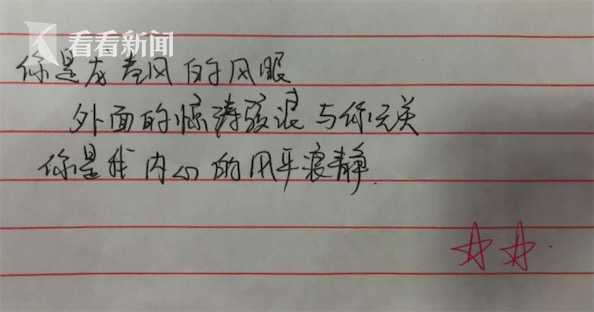 看看新闻
你是龙卷风的风眼
外面的惊涛骇浪与你无关
你是我内心的风平浪静.